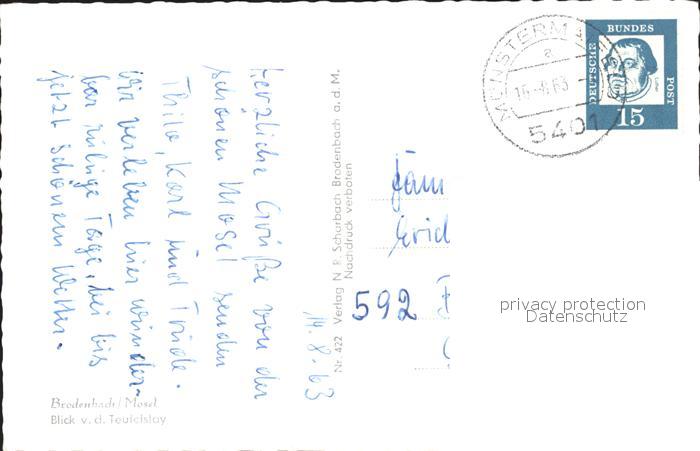 14.8.63
Herzliche Grüße von der
schönen Mosel senden
Thilo, Karl und Trude.
Wir verleben hier wunder-
bar ruhige Tage, bei bis
jetzt schönem Wetter.
Brodenbach/Mosel
Blick v. d. Teufelslay
Nr. 422 Verlag N. R. Scharbach Brodenbach a. d. M.
Nachdruck verboten
MÜNSTERMAIFELD
a
16.-8.63
5401
DEUTSCHE BUNDES POST
15
Fam
592
privacy protection
Datenschutz